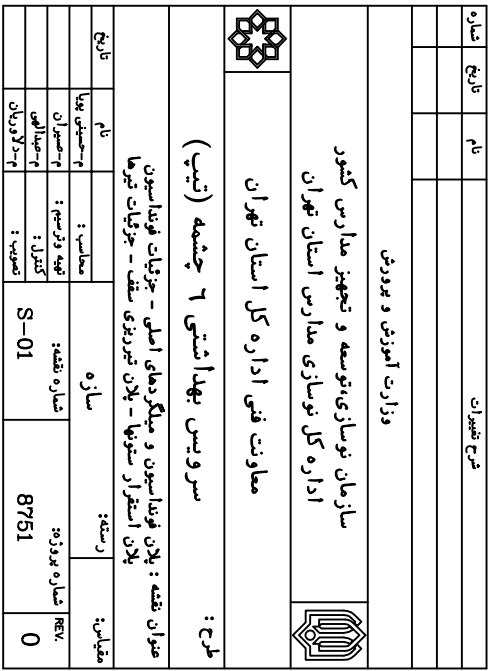 شماره تاریخ نام شرح تغییرات
وزارت آموزش و پرورش
سازمان نوسازی،توسعه و تجهیز مدارس کشور
اداره کل نوسازی مدارس استان تهران
معاونت فنی اداره کل استان تهران
طرح :
سرویس بهداشتی ٦ چشمه (تیپ)
عنوان نقشه : پلان فونداسیون و میلگردهای اصلی - جزئیات فونداسیون
پلان استقرار ستونها - پلان تیرریزی سقف - جزئیات تیرها
تاریخ نام
محاسب : م-حسینی پویا
تهیه وترسیم : م-صیران
کنترل : م-عبدالهی
تصویب : م-دلاوریان
رسته: سازه
مقیاس:
شماره نقشه: S-01
شماره پروژه: 8751
REV. 0